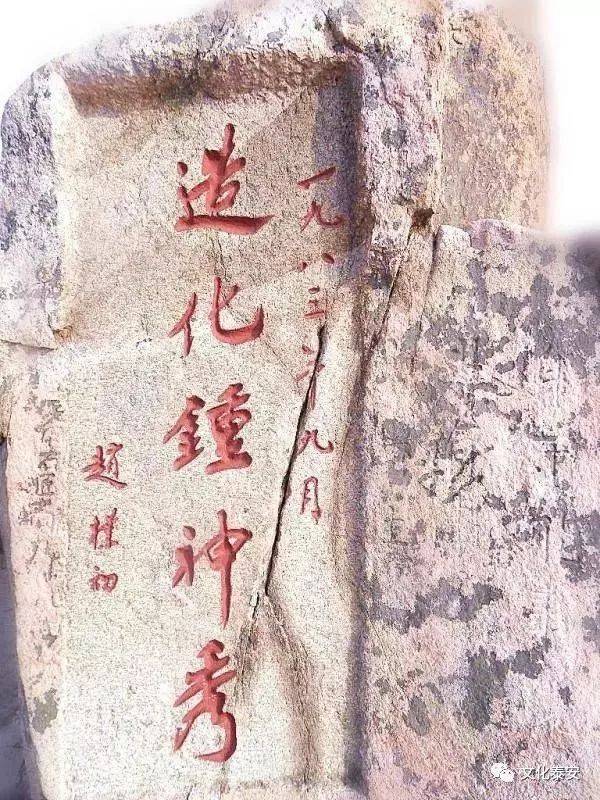 一九八三年九月
造化鍾神秀
趙樸初
文化泰安